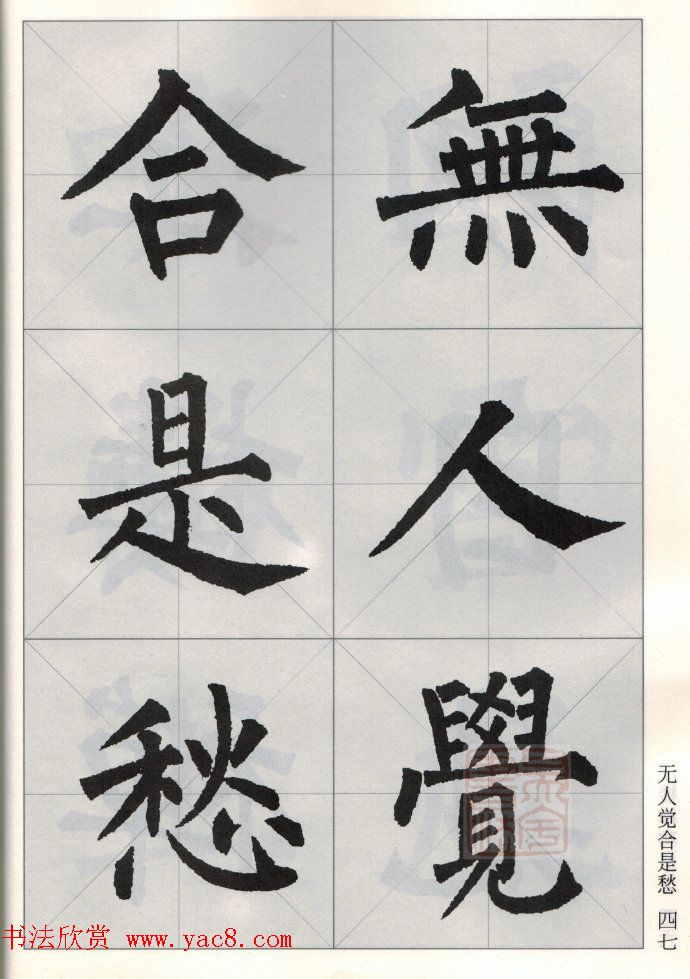 無人覺
合是愁
无人觉合是愁 四七
书法欣赏 www.yac8.com